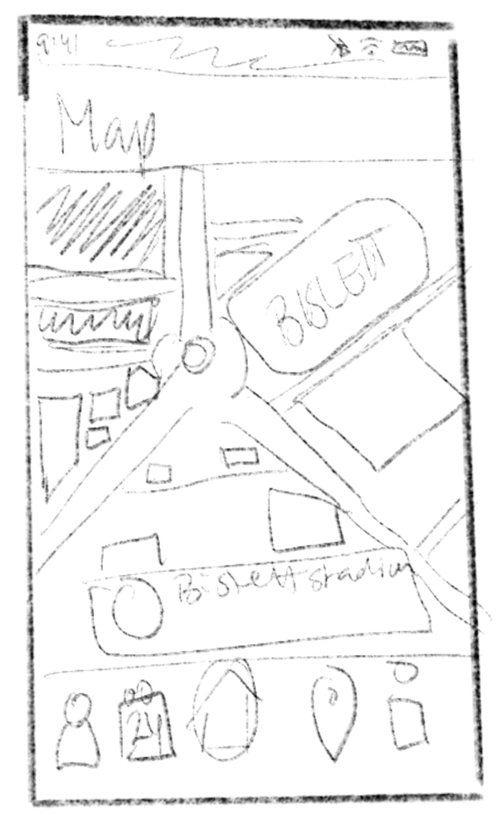 9:41
Map
BISLETT
Bislett stadium
24